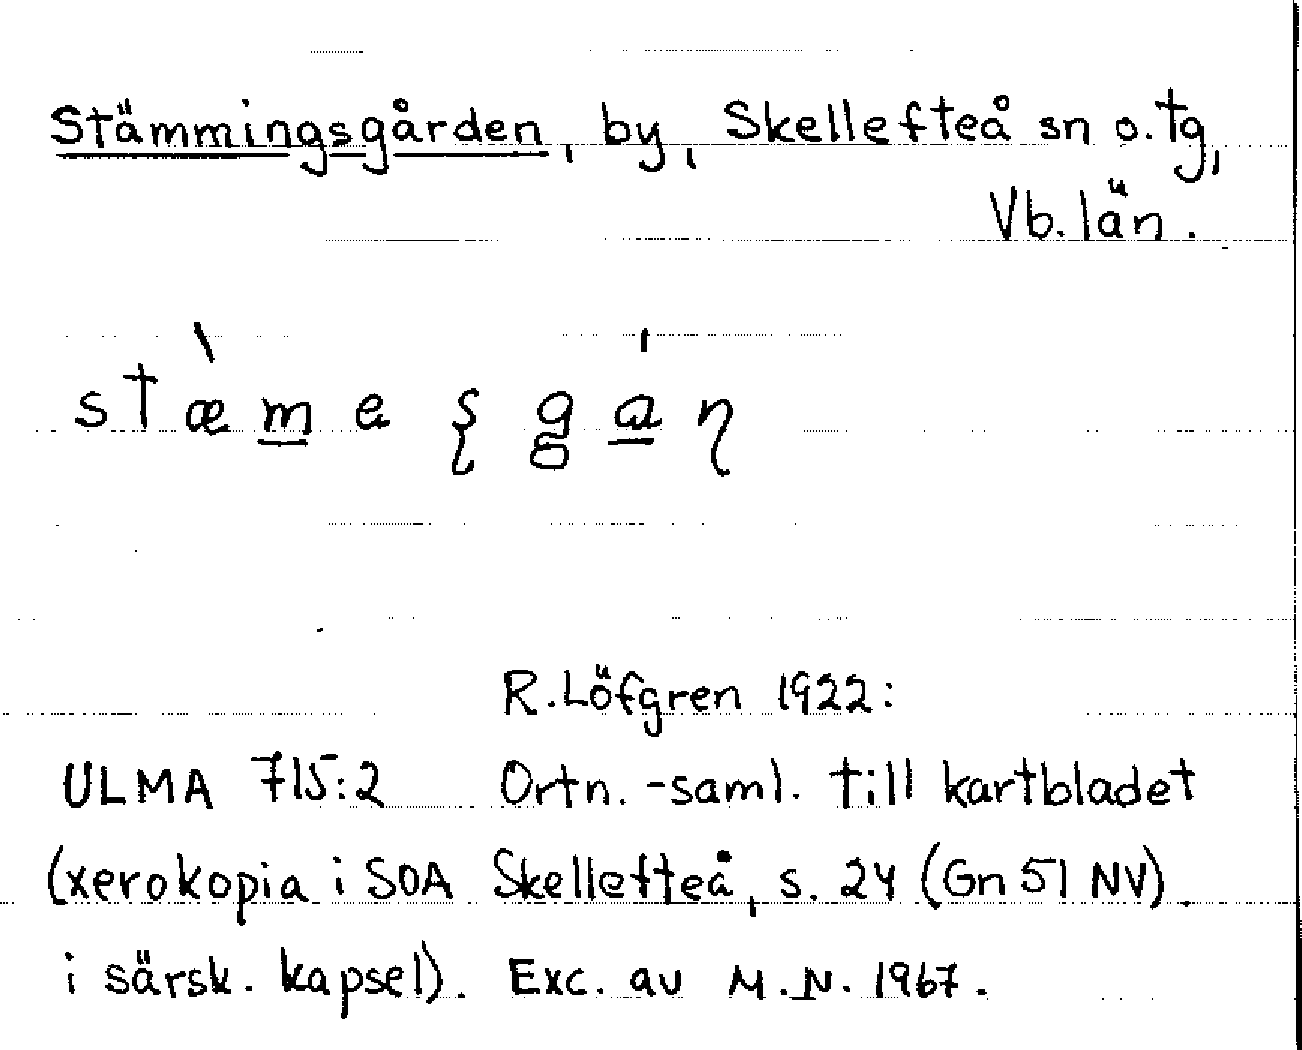 Stämmingsgården, by, Skellefteå sn o. tg,
Vb. län.
stæme ʂgaɳ
R. Löfgren 1922:
ULMA 715:2 Ortn.-saml. till kartbladet
(xerokopia i SOA Skellefteå, s. 24 (Gn 51 NV).
i särsk. kapsel). Exc. av M.N. 1967.